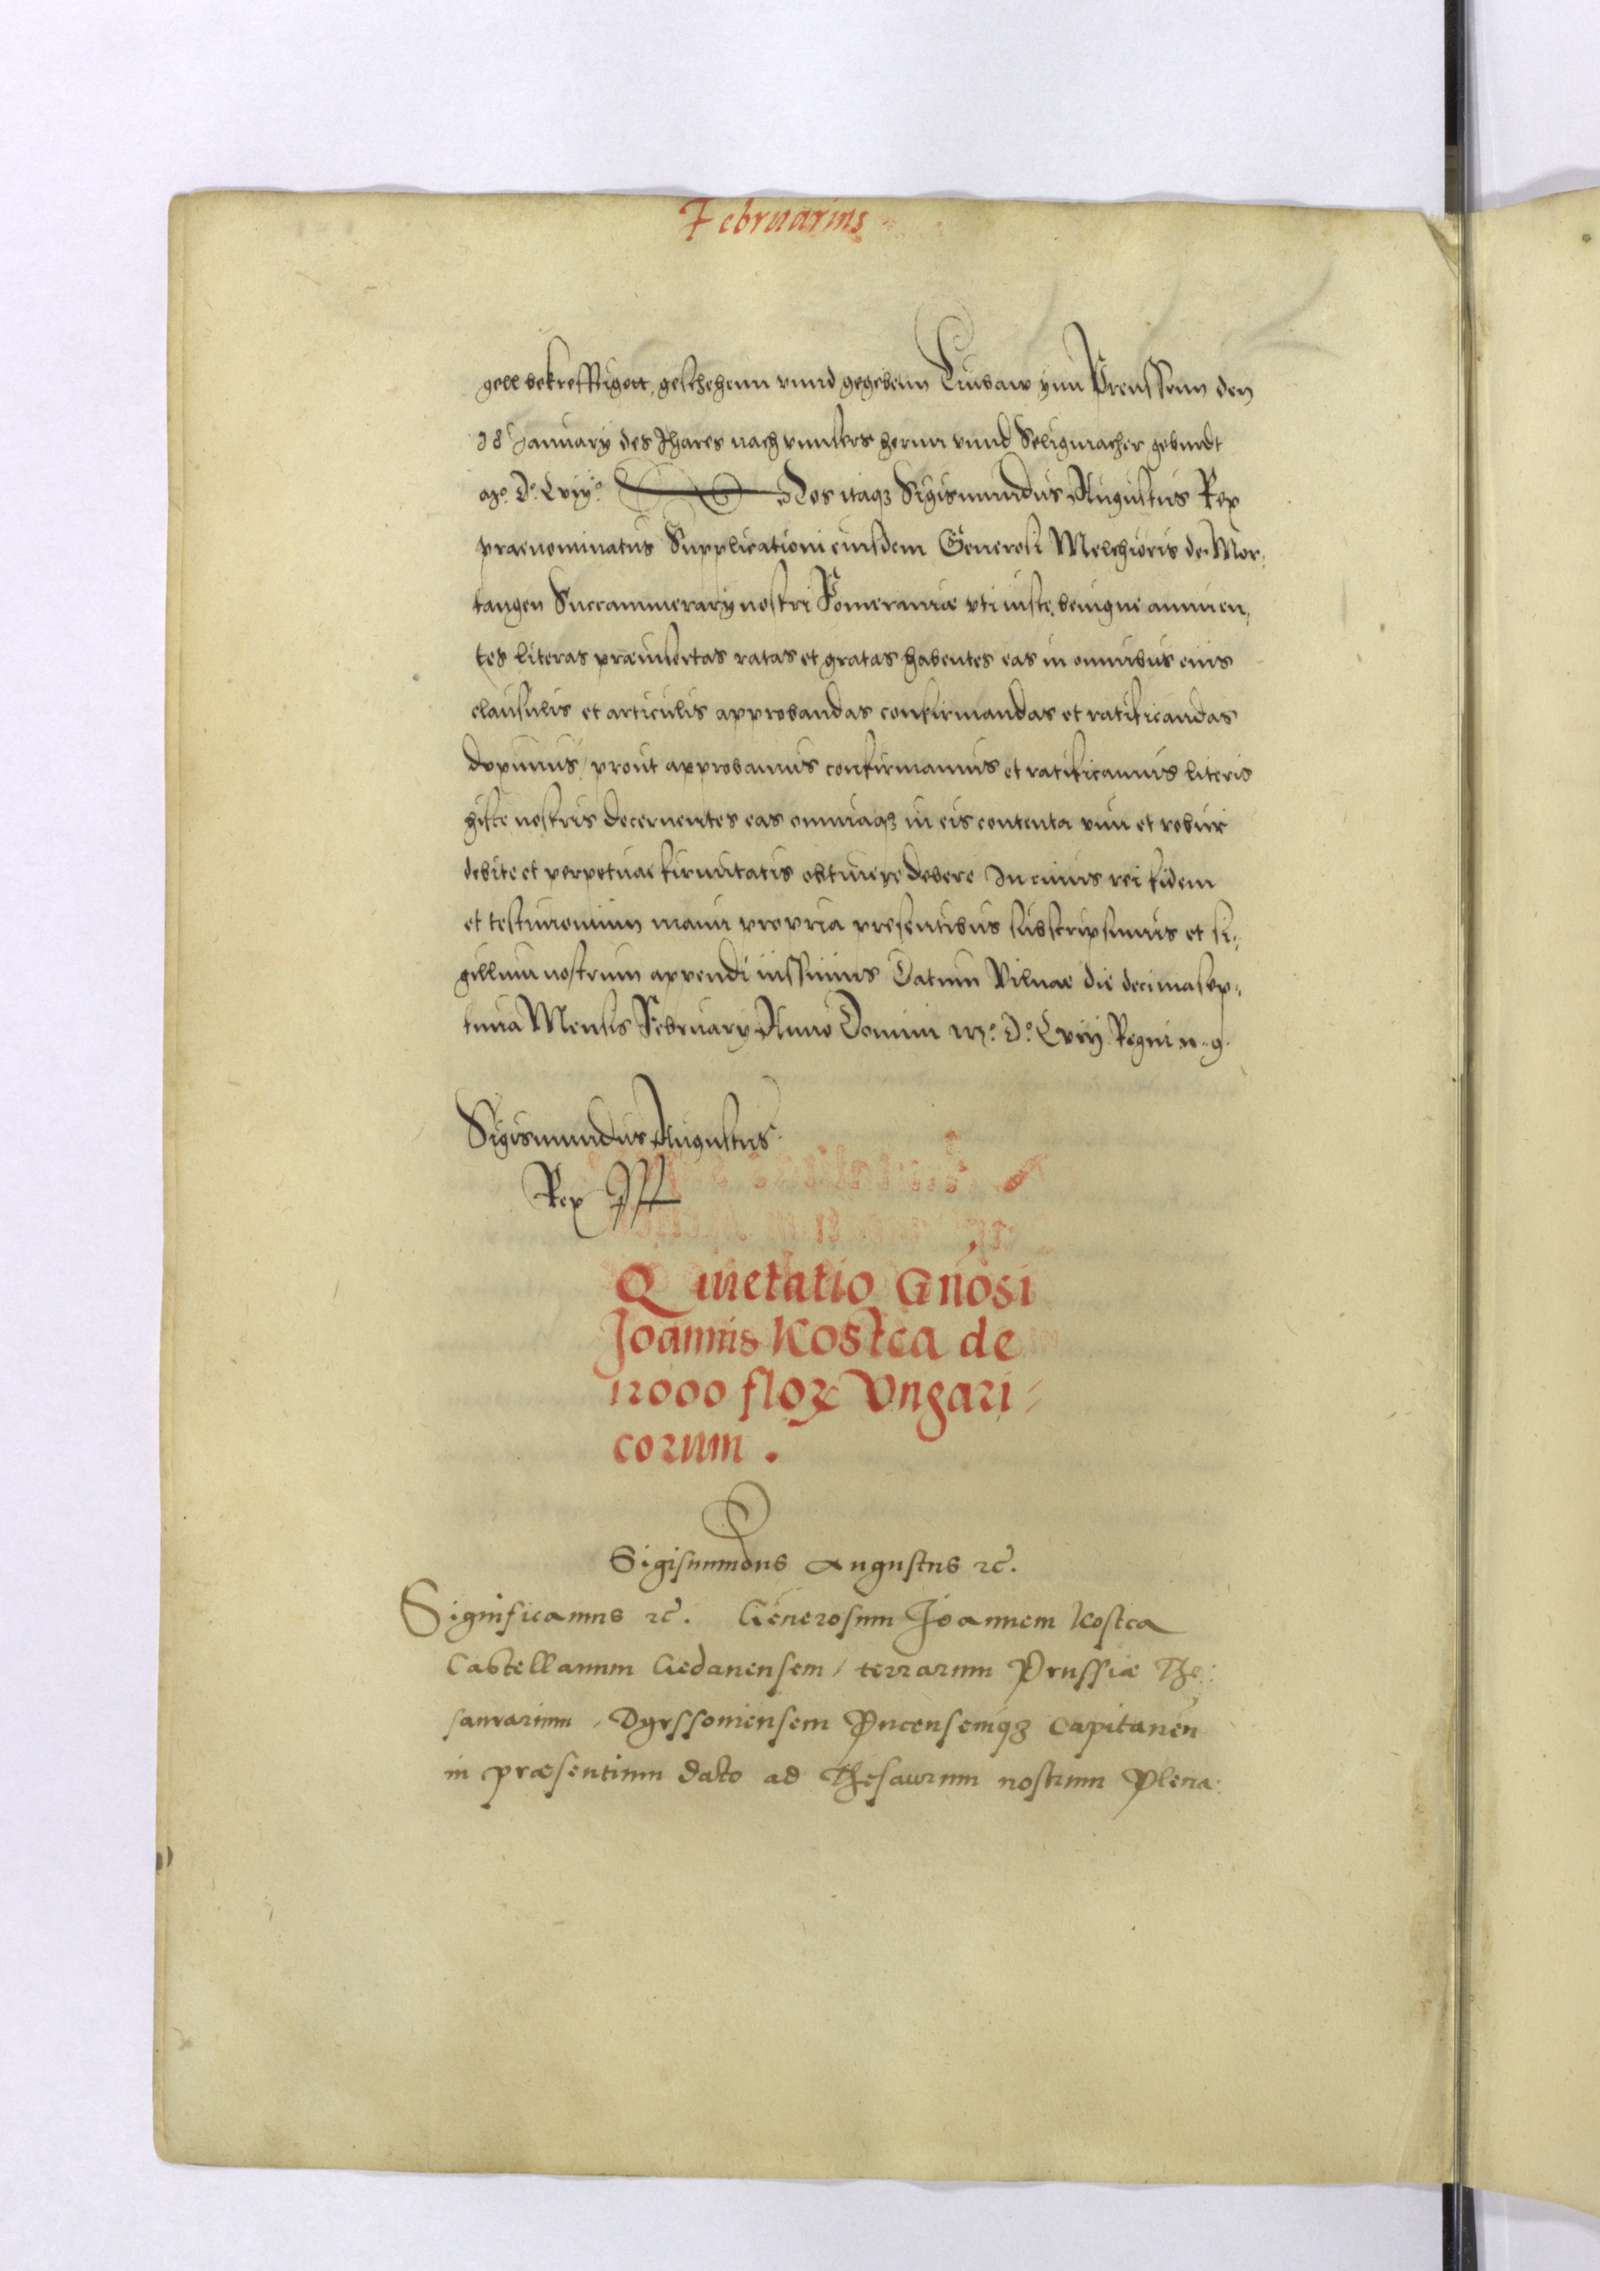 Februarius
gell bekrefftigett, geschehenn vnnd gegebenn Liubaw ynn Preussenn den
18 January des Jhares nach vnnsers hernn vnnd Seligmacher geburdt
Mº. Dº. Lviijº. Nos itaqz Sigismundus Augustus Rex
praenominatus Supplicationi eiusdem Generosi Melchioris de Mor-
tangen Succammerarij nostri Pomeraniae vti iuste, benigne annuen-
tes literas praeinsertas ratas et gratas habentes eas in omnibus eius
clausulis et articulis approbandas confirmandas et ratificandas
duximus / prout approbamus confirmamus et ratificamus literis
hisce nostris Decernentes eas omniaqz in eis contenta vim et robur
debite et perpetuae firmitatis obtinere debere In cuius rei fidem
et testimonium manu propria presentibus subscripsimus et si-
gillum nostrum appendi iussimus Datum Vilnae die decimasep-
tima Mensis February Anno Domini Mº. Dº. Lviij Regni n.
Sigismundus Augustus
Rex
Quietatio Gnosi
Joannis Kostca de
12000 flor Vngari-
corum.
Sigismundus Augustus rc.
Significamus rc. Generosum Joannem Kostca
Castellanum Gedanensem / terrarum Prussiæ The-
saurarium, Pucensemqz Capitaneu
in præsentium dato ad Thesaurum nostrum Plena: